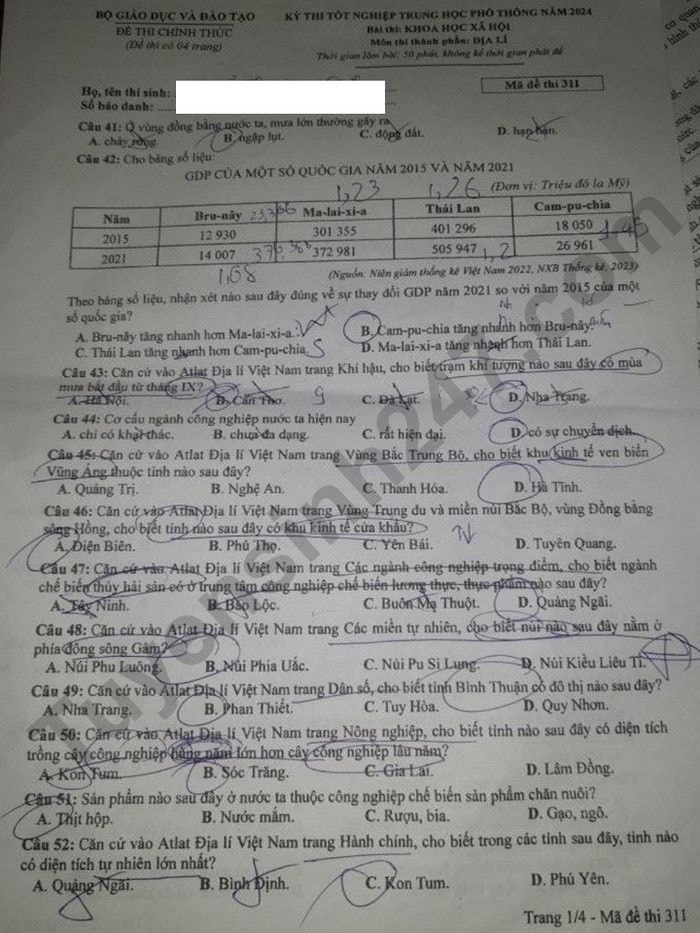 BỘ GIÁO DỤC VÀ ĐÀO TẠO
ĐỀ THI CHÍNH THỨC
(Đề thi có 04 trang)
KỲ THI TỐT NGHIỆP TRUNG HỌC PHỔ THÔNG NĂM 2024
Bài thi: KHOA HỌC XÃ HỘI
Môn thi thành phần: ĐỊA LÍ
Thời gian làm bài: 50 phút, không kể thời gian phát đề
Họ, tên thí sinh:
Số báo danh:
Mã đề thi 311
Câu 41: Ở vùng đồng bằng nước ta, mưa lớn thường gây ra
A. cháy rừng. B. ngập lụt. C. động đất. D. hạn hán.
Câu 42: Cho bảng số liệu:
GDP CỦA MỘT SỐ QUỐC GIA NĂM 2015 VÀ NĂM 2021
1,23 1,26
(Đơn vị: Triệu đô la Mỹ)
Năm Bru-nây Ma-lai-xi-a Thái Lan Cam-pu-chia
2015 12 930 301 355 401 296 18 050
2021 14 007 372 981 505 947 26 961
1,08
(Nguồn: Niên giám thống kê Việt Nam 2022, NXB Thống kê, 2023)
Theo bảng số liệu, nhận xét nào sau đây đúng về sự thay đổi GDP năm 2021 so với năm 2015 của một
số quốc gia?
A. Bru-nây tăng nhanh hơn Ma-lai-xi-a. B. Cam-pu-chia tăng nhanh hơn Bru-nây.
C. Thái Lan tăng nhanh hơn Cam-pu-chia. D. Ma-lai-xi-a tăng nhanh hơn Thái Lan.
Câu 43: Căn cứ vào Atlat Địa lí Việt Nam trang Khí hậu, cho biết trạm khí tượng nào sau đây có mùa
mưa bắt đầu từ tháng IX?
A. Hà Nội. B. Cần Thơ. C. Đà Lạt. D. Nha Trang.
Câu 44: Cơ cấu ngành công nghiệp nước ta hiện nay
A. chỉ có khai thác. B. chưa đa dạng. C. rất hiện đại. D. có sự chuyển dịch.
Câu 45: Căn cứ vào Atlat Địa lí Việt Nam trang Vùng Bắc Trung Bộ, cho biết khu kinh tế ven biển
Vũng Áng thuộc tỉnh nào sau đây?
A. Quảng Trị. B. Nghệ An. C. Thanh Hóa. D. Hà Tĩnh.
Câu 46: Căn cứ vào Atlat Địa lí Việt Nam trang Vùng Trung du và miền núi Bắc Bộ, vùng Đồng bằng
sông Hồng, cho biết tỉnh nào sau đây có khu kinh tế cửa khẩu?
A. Điện Biên. B. Phú Thọ. C. Yên Bái. D. Tuyên Quang.
Câu 47: Căn cứ vào Atlat Địa lí Việt Nam trang Các ngành công nghiệp trọng điểm, cho biết ngành
chế biến thủy hải sản có ở trung tâm công nghiệp chế biến lương thực, thực phẩm nào sau đây?
A. Tây Ninh. B. Bảo Lộc. C. Buôn Ma Thuột. D. Quảng Ngãi.
Câu 48: Căn cứ vào Atlat Địa lí Việt Nam trang Các miền tự nhiên, cho biết núi nào sau đây nằm ở
phía đông sông Gâm?
A. Núi Phu Luông. B. Núi Phia Uắc. C. Núi Pu Si Lung. D. Núi Kiều Liêu Ti.
Câu 49: Căn cứ vào Atlat Địa lí Việt Nam trang Dân số, cho biết tỉnh Bình Thuận có đô thị nào sau đây?
A. Nha Trang. B. Phan Thiết. C. Tuy Hòa. D. Quy Nhơn.
Câu 50: Căn cứ vào Atlat Địa lí Việt Nam trang Nông nghiệp, cho biết tỉnh nào sau đây có diện tích
trồng cây công nghiệp hàng năm lớn hơn cây công nghiệp lâu năm?
A. Kon Tum. B. Sóc Trăng. C. Gia Lai. D. Lâm Đồng.
Câu 51: Sản phẩm nào sau đây ở nước ta thuộc công nghiệp chế biến sản phẩm chăn nuôi?
A. Thịt hộp. B. Nước mắm. C. Rượu, bia. D. Gạo, ngô.
Câu 52: Căn cứ vào Atlat Địa lí Việt Nam trang Hành chính, cho biết trong các tỉnh sau đây, tỉnh nào
có diện tích tự nhiên lớn nhất?
A. Quảng Ngãi. B. Bình Định. C. Kon Tum. D. Phú Yên.
Trang 1/4 - Mã đề thi 311
Tuyensinh247.com